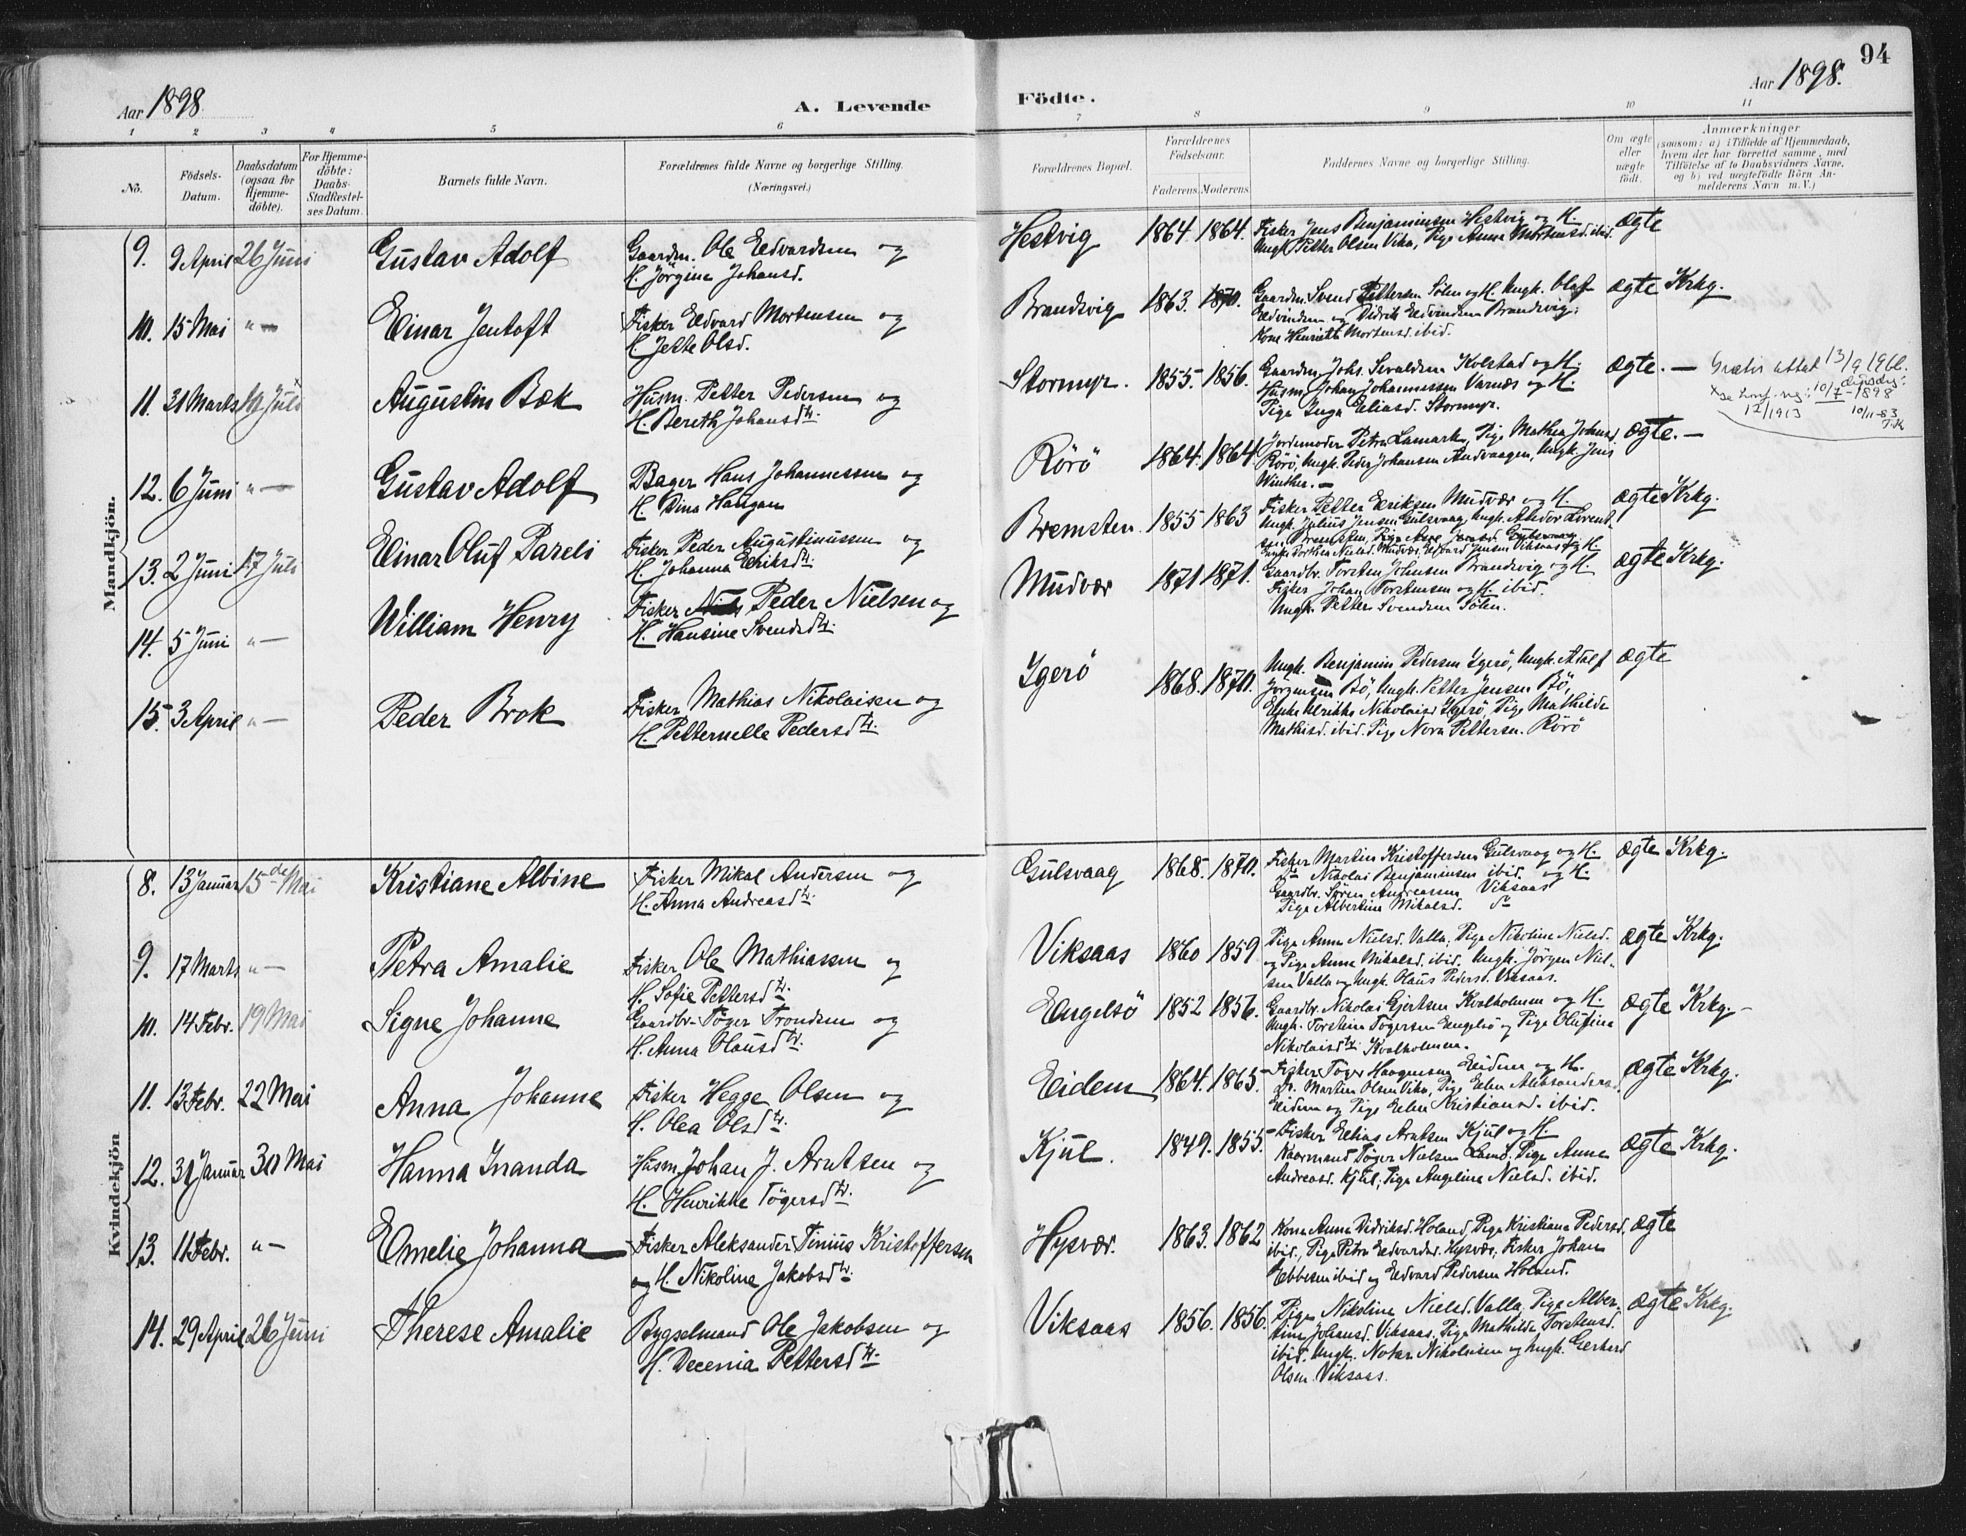 Aar 1898.
A. Levende
Födte.
Aar 1898.
94
1 2 3 4 5 6
7 8 9 10 11
No.
Födsels-Datum.
Daabsdatum (ogsaa for Hjemme-döbte).
For Hjemme-döbte: Daabs-Stadfæstel-ses Datum.
Barnets fulde Navn.
Forældrenes fulde Navne og borgerlige Stilling.
(Næringsvei.)
Forældrenes Bopæl.
Forældrenes Födselsaar.
Faderens. Moderens.
Faddernes Navne og borgerlige Stilling.
Om ægte eller uægte födt.
Anmærkninger
(saasom: a) i Tilfælde af Hjemmedaab,
hvem der har forrettet samme, med
Tilföielse af to Daabsvidners Navne,
og b) ved uægtefödte Börn An-
melderens Navn m. V.)
Mandkjön.
9. 9 April 26 Juni Gustav Adolf Gaardm. Ole Edvardsen og
H. Jörgine Johansd.
Hestvig 1864. 1864. Fisker Jens Benjaminsen Hestvig og H.
Ungk. Petter Olsen Vika, Pige Anna Mortensd. ibid. ægte
10. 15 Mai "— Einar Jentoft Fisker Edvard Mortensen og
H. Jette Olsd.
Brandvig 1863. 1870. Gaardm. Svend Pettersen Sölen og H. Ungk. Olaf ægte Krkg.
Edvindsen og Didrik Edvindsen Brandvig;
Kone Henriette Mortensd. ibid.
11. 31 Marts 10 Juli Augustin Bæk Husm. Petter Pedersen og
H. Bereth Johansdtr.
Stormyr. 1855. 1856. Gaardm. Johs. Sevaldsen Kolstad og H. ægte. —
Husm. Johan Johannessen Varnæs og H.
Pige Inga Eliasd. Stormyr.
Gratis attest 13/9 1961.
10/7-1898
12/1913
10/11-83
12. 6 Juni "— Gustav Adolf Bager Hans Johannessen og
H. Dina Haugan
Rörö 1864. 1864 Jordemoder Petra Lamark, Pige Mathea Johansd. ægte. —
Rörö, Ungk. Peder Johansen Andvaagen, Ungk. Jens
Winther. —
13. 2 Juni 17 Juli Einar Oluf Pareli Fisker Peder Augustinussen og
H. Johanna Eriksdtr.
Bremsten 1855 1863 Fisker Petter Eriksen Mudvær og H. ægte Krkg.
Ungk. Julius Jensen Gulsvaag, Ungk. Lorent-
sen Bremsten, Pige Gulsvaag
14. 5 Juni "— William Henry Fisker Peder Nielsen og
H. Hansine Svendsdtr.
Mudvær 1871 1871. Gaardbr. Torsten Johnsen Brandvig og H. ægte Krkg.
Fisker Johan Torstensen og H. ibid.
Ungk. Petter Svendsen Sölen.
15. 3 April "— Peder Brok Fisker Mathias Nikolaisen og
H. Petternelle Pedersdtr.
Ygerö 1868. 1870. Ungk. Benjamin Pedersen Ygerö, Ungk. Adolf ægte
Jörgensen Bö, Ungk. Petter Jensen Bö,
Enke Ulrikke Nikolaisd Ygerö, Pige Mathilde
Mathisd. ibid. Pige Nora Pettersen. Rörö
Kvindekjön
8. 13 Januar 15de Mai Kristiane Albine Fisker Mikal Andersen og
H. Anna Andreasdtr.
Gulsvaag 1868. 1870. Fisker Martin Kristoffersen Gulsvaag og H. ægte Krkg.
Do Nikolai Benjaminsen ibid. og H.
Gaardbr. Sören Andreassen Viksaas
Pige Albertine Mikalsd. do
9. 17 Marts "— Petra Amalie Fisker Ole Mathiassen og
H. Sofie Pettersdtr.
Viksaas 1860 1859 Pige Anna Nielsd. Valla, Pige Nikoline Nielsd. ægte Krkg.
og Pige Anna Mikalsd. ibid. Ungk. Jörgen Niel-
sen Valla og Ungk. Olaus Pedersd. Viksaas.
10. 14 Febr. 19 Mai Signe Johanne Gaardbr. Töger Trondsen og
H. Anna Olausdtr.
Engelsö 1852 1856. Gaardbr. Nikolai Gjertsen Kvalholmen og H. ægte Krkg. —
Ungk. Torstein Tögersen Engelsö og Pige Olufina
Nikolaisdtr. Kvalholmen.
11. 13 Febr. 22 Mai Anna Johanne Fisker Hegge Olsen og
H. Olea Olsdtr.
Eidem 1864. 1865. Fisker Töger Haagensen Eidem og H. ægte Krkg.
Do. Martin Olsen Vika, Pige Elen Aleksandersd.
Eidem og Pige Elen Kristiansd. ibid.
12. 31 Januar 30 Mai Hanna Inanda Husm. Johan J. Arntsen og
H. Henrikke Tögersdtr.
Kjul. 1849. 1855. Fisker Elias Arntsen Kjul og H. ægte Krkg.
Kaarmand Töger Nielsen Pige Anna
Andreasd. Kjul, Pige Angeline Nielsd. ibid.
13. 11 Febr. "— Emelie Johanna Fisker Aleksander Tinius Kristoffersen
og H. Nikoline Jakobsdtr.
Hysvær. 1863. 1862 Kone Anna Didriksd. Holand, Pige Kristiana Pedersd. ægte
ibid., Pige Petra Edvardsd. Hysvær, Fisker Johan
Ebbesen ibid og Edvard Pedersen Holand.
14. 29 April 26 Juni Therese Amalie Bygselmand Ole Jakobsen og
H. Decenia Pettersdtr.
Viksaas 1856. 1856. Pige Nikoline Nielsd. Valla, Pige Alber- ægte Krkg.
tine Johansd. Viksaas, Pige Mathilde Torstensd.
ibid. Ungk. Notar Nikolaisen og Ungk. Gerhard
Olsen Viksaas.